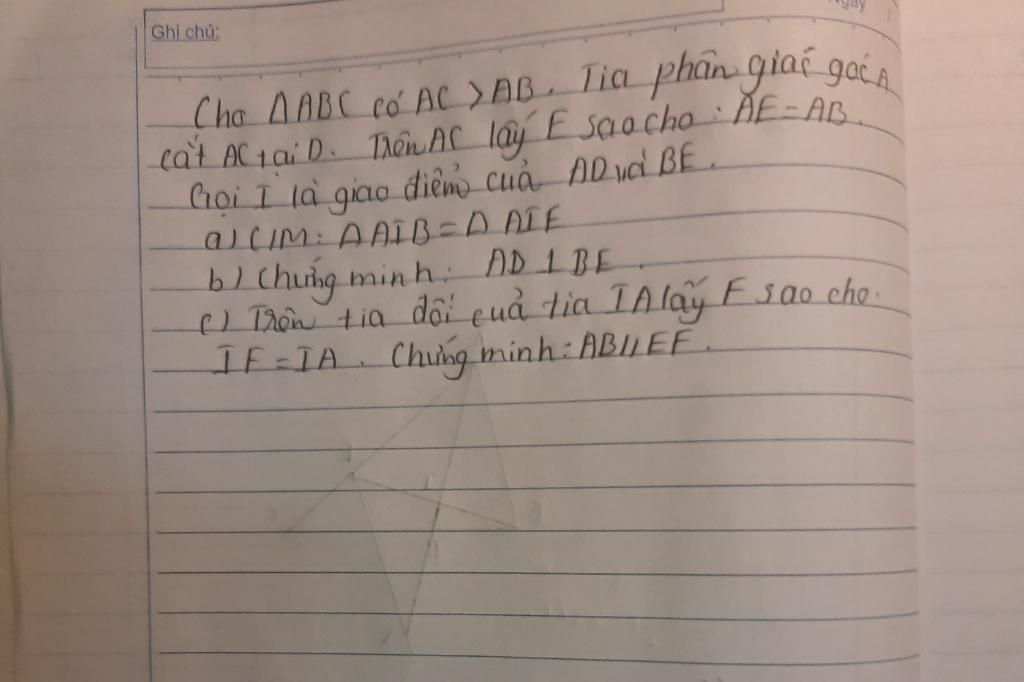 Ngày
Ghi chú:
Cho ΔABC có AC > AB. Tia phân giác góc A
cắt AC tại D. Trên AC lấy E sao cho: AE = AB.
Gọi I là giao điểm của AD và BE.
a) C/M: ΔAIB = ΔAIE
b) Chứng minh: AD ⊥ BE.
c) Trên tia đối của tia IA lấy F sao cho.
IF = IA. Chứng minh: AB // EF.